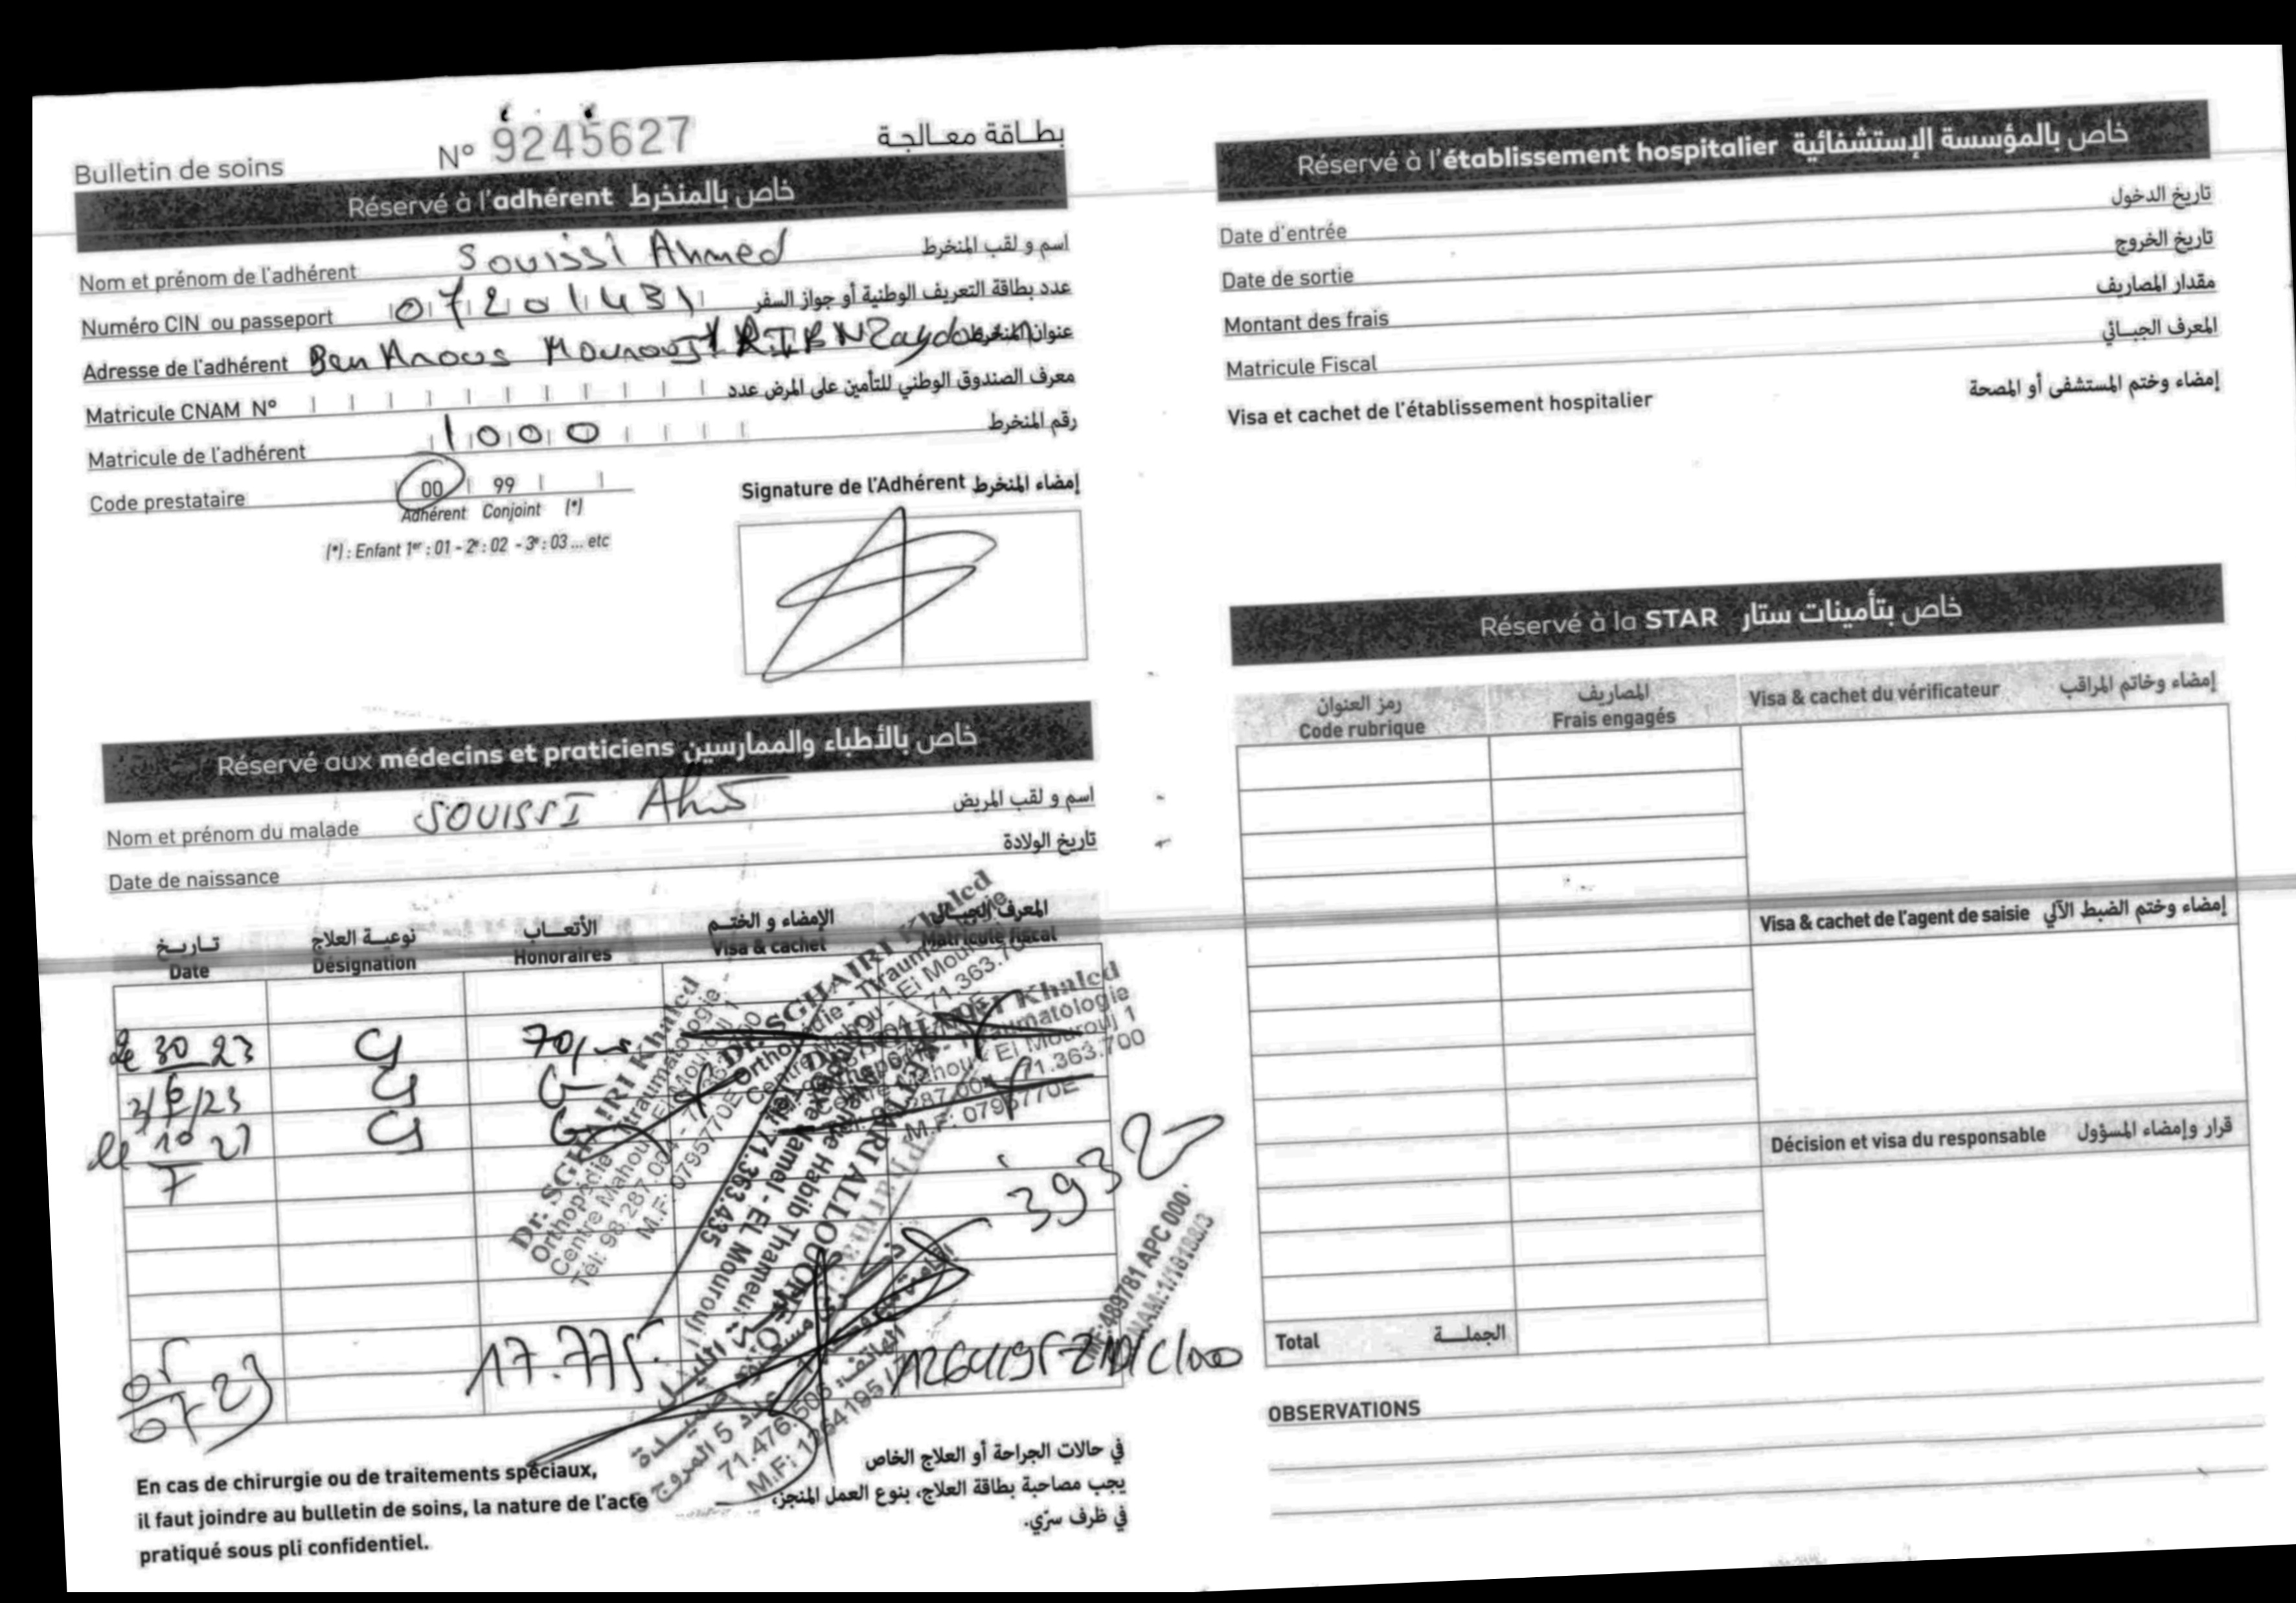 Bulletin de soins N° 9245627 بطاقة معالجة
Réservé à l'adhérent خاص بالمنخرط
Nom et prénom de l'adhérent Souissi Ahmed اسم و لقب المنخرط
Numéro CIN ou passeport 07201431 عدد بطاقة التعريف الوطنية أو جواز السفر
Adresse de l'adhérent Ben Arous Mourouj 1 R. IBN Zaydoun عنوان المنخرط
Matricule CNAM N° معرف الصندوق الوطني للتأمين على المرض عدد
Matricule de l'adhérent 1000 رقم المنخرط
Code prestataire 00 99
Adhérent Conjoint (*)
(*) : Enfant 1er : 01 - 2e : 02 - 3e : 03 ... etc
Signature de l'Adhérent إمضاء المنخرط
Réservé aux médecins et praticiens خاص بالأطباء والممارسين
Nom et prénom du malade SOUISSI اسم و لقب المريض
Date de naissance تاريخ الولادة
تاريخ نوعية العلاج الأتعاب الإمضاء و الختم المعرف الجبائي
Date Désignation Honoraires Visa & cachet Matricule fiscal
le 30 23 70
23
le 10 7
Dr. SGHAIRI Khaled
Orthopédie - Traumatologie
Centre Mahou - El Mourouj 1
Tél: 98.287.004 - 71.363.700
M.F: 0795770E
Dr. SGHAIRI Khaled
Orthopédie - Traumatologie
Centre Mahou - El Mourouj
Khaled
Traumatologie
El Mourouj 1
71.363.700
M.F: 0795770E
71.363.435
3932
05 07 23 17.775
71.476.506
M.F: 1264195
En cas de chirurgie ou de traitements spéciaux,
il faut joindre au bulletin de soins, la nature de l'acte
pratiqué sous pli confidentiel.
في حالات الجراحة أو العلاج الخاص
يجب مصاحبة بطاقة العلاج، بنوع العمل المنجز،
في ظرف سرّي.
Réservé à l'établissement hospitalier خاص بالمؤسسة الإستشفائية
Date d'entrée تاريخ الدخول
Date de sortie تاريخ الخروج
Montant des frais مقدار المصاريف
Matricule Fiscal المعرف الجبائي
Visa et cachet de l'établissement hospitalier إمضاء وختم المستشفى أو المصحة
Réservé à la STAR خاص بتأمينات ستار
رمز العنوان المصاريف Visa & cachet du vérificateur إمضاء وخاتم المراقب
Code rubrique Frais engagés
Visa & cachet de l'agent de saisie إمضاء وختم الضبط الآلي
Décision et visa du responsable قرار وإمضاء المسؤول
Total الجملة
OBSERVATIONS